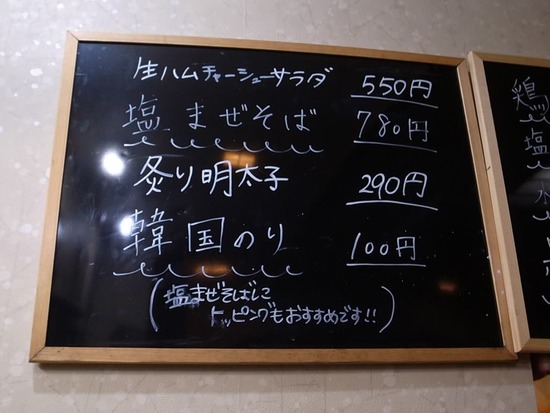 生ハムチャーシューサラダ 550円
塩まぜそば 780円
炙り明太子 290円
韓国のり 100円
(塩まぜそばに
トッピングもおすすめです!!)
鶏
塩